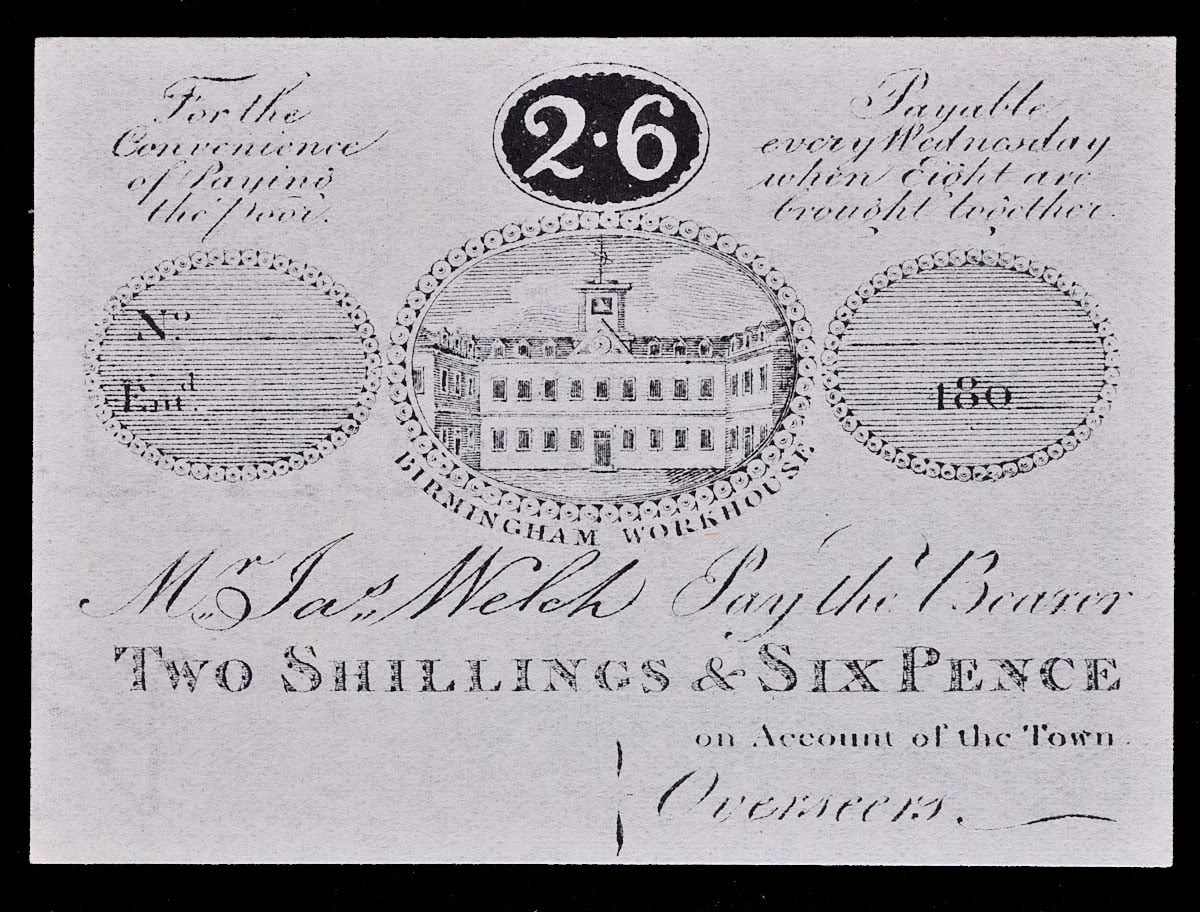 For the
Convenience
of Paying
the Poor.
2·6
Payable
every Wednesday
when Eight are
brought together.
No.
Entd.
180
BIRMINGHAM WORKHOUSE
Mr. Jas. Welch Pay the Bearer
TWO SHILLINGS & SIX PENCE
on Account of the Town
Overseers.